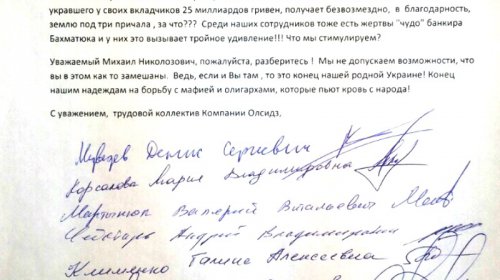 укравшего у своих вкладчиков 25 миллиардов гривен, получает безвозмездно, в благодарность,
землю под три причала , за что??? Среди наших сотрудников тоже есть жертвы "чудо" банкира
Бахматюка и у них это вызывает тройное удивление!!! Что мы стимулируем?
Уважаемый Михаил Николозович, пожалуйста, разберитесь ! Мы не допускаем возможности, что
вы в этом как то замешаны. Ведь, если и Вы там , то это конец нашей родной Украине! Конец
нашим надеждам на борьбу с мафией и олигархами, которые пьют кровь с народа!
С уважением, трудовой коллектив Компании Олсидз,
Медведев Денис Сергеевич
Корсакова Мария Владимировна
Мартынюк Валерий Витальевич
Андрей Владимирович
Клименко Галина Алексеевна